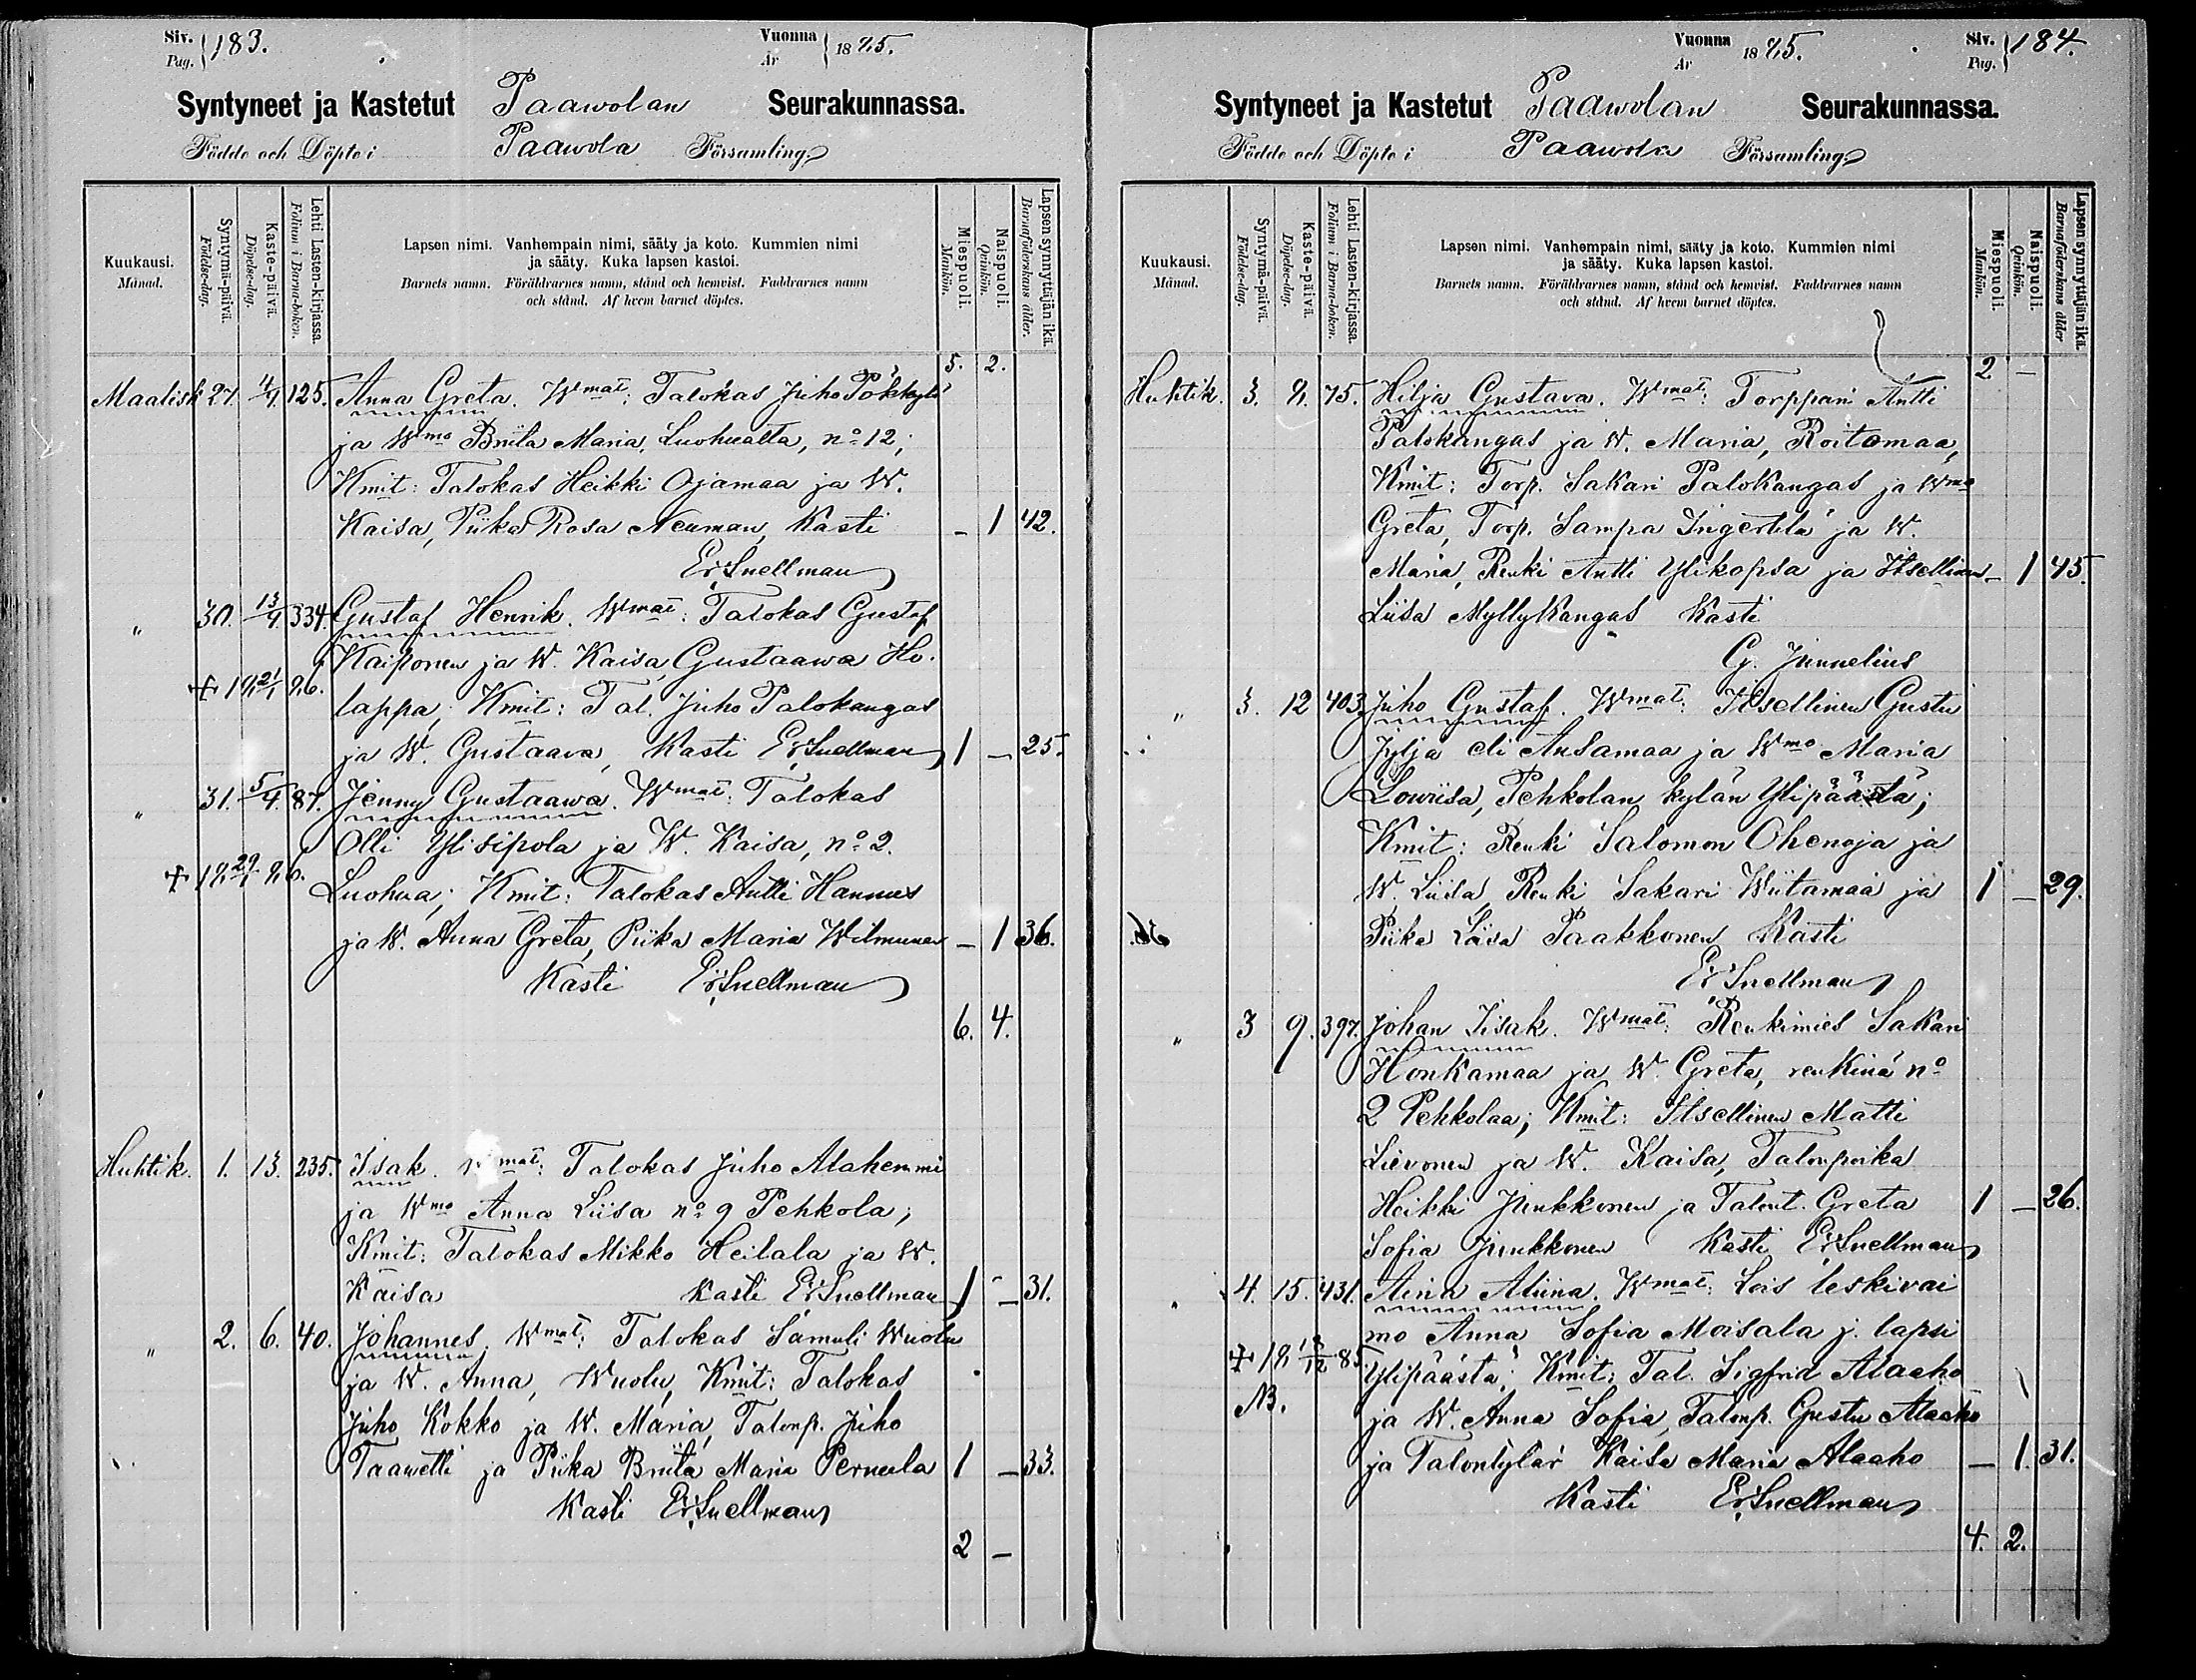 Siv. Pag. 183.
Vuonna År 1875.
Syntyneet ja Kastetut Paawolan Seurakunnassa.
Födde och Döpte i Paawola Församling
Kuukausi. Månad.
Syntymä-päivä. Födelse-dag.
Kaste-päivä. Döpelse-dag.
Lehti Lasten-kirjassa. Folium i Barna-boken.
Lapsen nimi. Vanhempain nimi, sääty ja koto. Kummien nimi
ja sääty. Kuka lapsen kastoi.
Barnets namn. Föräldrarnes namn, stånd och hemvist. Faddrarnes namn
och stånd. Af hvem barnet döptes.
Miespuoli. Mankön.
Naispuoli. Qvinkön.
Lapsen synnyttäjän ikä. Barnaföderskans ålder.
5. 2.
Maalisk 27. 4/4 125. Anna Greta. Wmat: Talokas Juho Pökkylä
ja Wmo Briita Maria, Luohualta, no 12;
Kmit: Talokas Heikki Ojamaa ja W.
Kaisa, Piika Rosa Neuman, Kasti - 1 42.
Er. Snellman
" 30. 13/4 334. Gustaf Henrik. Wmat: Talokas Gustaf
Kaiponen ja W. Kaisa Gustaawa Ho-
lappa; Kmit: Tal. Juho Palokangas
ja W. Gustaava, Kasti Er. Snellman 1 - 25.
" 31. 5/4 87. Jenny Gustaawa. Wmat: Talokas
Olli Ylisipola ja W. Kaisa, no 2.
Luohua; Kmit: Talokas Antti Hannus
ja W. Anna Greta, Piika Maria Wilmunen - 1 36.
Kasti Er. Snellman
6. 4.
Huhtik. 1. 13. 235. Isak. Wmat: Talokas Juho Alahemmi
ja Wmo Anna Liisa no 9 Pehkola;
Kmit: Talokas Mikko Heilala ja W.
Kaisa Kasti Er. Snellman 1 - 31.
" 2. 6. 40. Johannes. Wmat: Talokas Samuli Wuolu
ja W. Anna, Wuolu, Kmit: Talokas
Juho Kokko ja W. Maria, Talonp. Juho
Taawetti ja Piika Briita Maria Pernula 1 - 33.
Kasti Er. Snellman
2 -
Vuonna År 1875.
Siv. Pag. 184.
Syntyneet ja Kastetut Paawolan Seurakunnassa.
Födde och Döpte i Paawola Församling
Kuukausi. Månad.
Syntymä-päivä. Födelse-dag.
Kaste-päivä. Döpelse-dag.
Lehti Lasten-kirjassa. Folium i Barna-boken.
Lapsen nimi. Vanhempain nimi, sääty ja koto. Kummien nimi
ja sääty. Kuka lapsen kastoi.
Barnets namn. Föräldrarnes namn, stånd och hemvist. Faddrarnes namn
och stånd. Af hvem barnet döptes.
Miespuoli. Mankön.
Naispuoli. Qvinkön.
Lapsen synnyttäjän ikä. Barnaföderskans ålder
2 -
Huhtik. 3. 75. Hilja Gustava. Wmat: Torppari Antti
Palokangas ja W. Maria, Roitomaa,
Kmit: Torp. Sakari Palokangas ja Wmo
Greta, Torp. Sampa Ingertilä ja W.
Maria, Renki Antti Ylikopsa ja Itsellinen - 1 45.
Liisa Myllykangas Kasti
G. Junnelius
" 3. 12 403. Juho Gustaf. Wmat: Itsellinen Gustu
Jyljä eli Ansamaa ja Wmo Maria
Lowiisa, Pehkolan kylän Ylipäästä;
Kmit: Renki Salomon Ohenoja ja
W. Liisa, Renki Sakari Wiitamaa ja 1 - 29.
Piika Liisa Paakkonen Kasti
Er Snellman
" 3 9. 397. Johan Iisak. Wmat: Renkimies Sakari
Honkamaa ja W. Greta, renkinä no
2 Pehkolaa; Kmit: Itsellinen Matti
Lievonen ja W. Kaisa, Talonpoika
Heikki Junkkonen ja Talont. Greta 1 - 26.
Sofia Junkkonen Kasti Er. Snellman
" 4. 15. 431. Aina Aliina. Wmat: Lois leskivai
mo Anna Sofia Moisala j. lapsi
Ylipäästä; Kmit: Tal. Sigfrid Alaaho
NB. ja W. Anna Sofia, Talonp. Gustu Alaaho
ja Talontytär Kaisa Maria Alaaho - 1. 31.
Kasti Er. Snellman
4. 2.